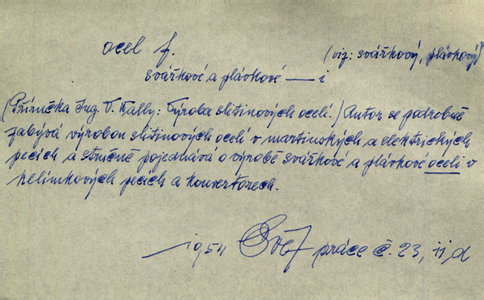 ocel f.
(viz: svářkový, plávkový)
svářkové a plávkové — i
(Příručka Ing V. Kally: Výroba slitinových ocelí.) Autor se podrobně
zabývá výrobou slitinových ocelí v martinských a elektrických
pecích a stručně pojednává o výrobě svářkové a plávkové oceli v
kelímkových pecích a konvertorech.
1954 práce č. 23, II, d